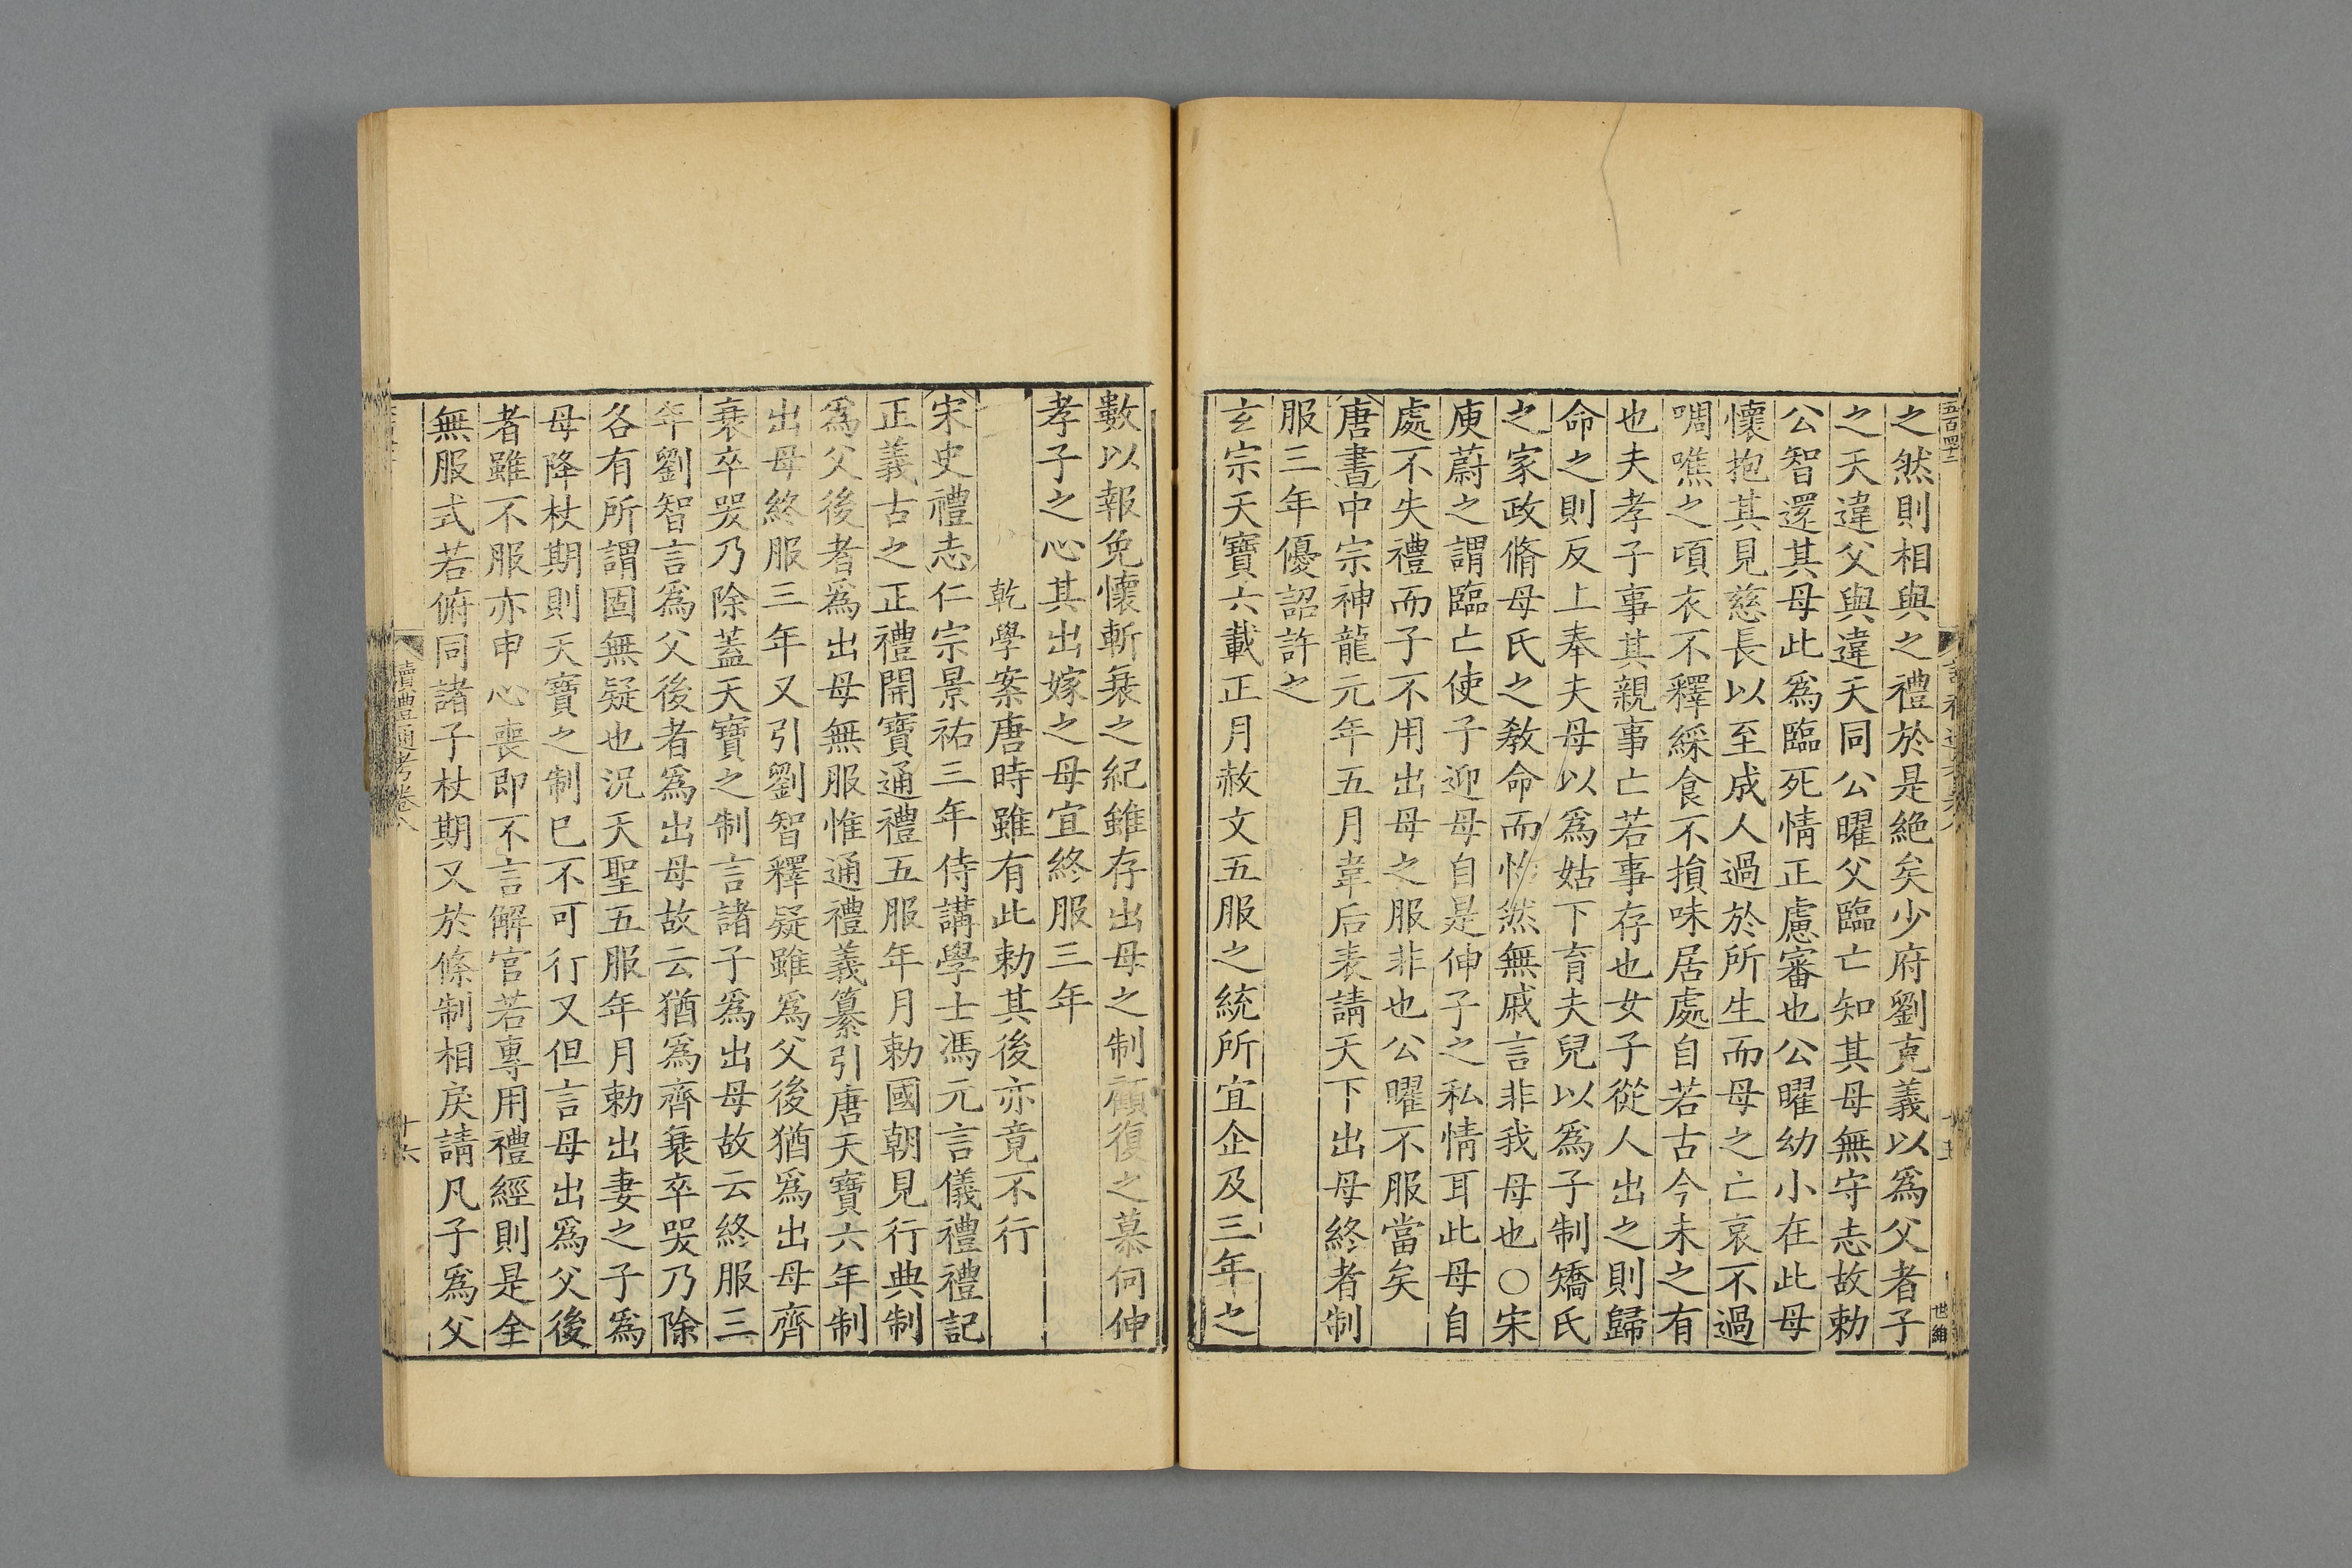 之然則相與之禮於是絶矣少府劉克義以爲父者子
之天違父與違天同公曜父臨亡知其母無守志故勅
公智還其母此爲臨死情正慮審也公曜幼小在此母
懷抱其見慈長以至成人過於所生而母之亡哀不過
啁噍之頃衣不釋綵食不損味居處自若古今未之有
也夫孝子事其親事亡若事存也女子從人出之則歸
命之則反上奉夫母以爲姑下育夫兒以爲子制矯氏
之家政脩母氏之敎命而恝然無戚言非我母也○宋
庾蔚之謂臨亡使子迎母自是伸子之私情耳此母自
處不失禮而子不用出母之服非也公曜不服當矣
唐書中宗神龍元年五月韋后表請天下出母終者制
服三年優詔許之
玄宗天寶六載正月赦文五服之統所宜企及三年之
數以報免懷斬衰之紀雖存出母之制顧復之慕何伸
孝子之心其出嫁之母宜終服三年
乾學案唐時雖有此勅其後亦竟不行
宋史禮志仁宗景祐三年侍講學士馮元言儀禮禮記
正義古之正禮開寶通禮五服年月勅國朝見行典制
爲父後者爲出母無服惟通禮義纂引唐天寶六年制
出母終服三年又引劉智釋疑雖爲父後猶爲出母齊
衰卒哭乃除蓋天寶之制言諸子爲出母故云終服三
年劉智言爲父後者爲出母故云猶爲齊衰卒哭乃除
各有所謂固無疑也況天聖五服年月勅出妻之子爲
母降杖期則天寶之制已不可行又但言母出爲父後
者雖不服亦申心喪即不言解官若專用禮經則是全
無服式若俯同諸子杖期又於條制相戾請凡子爲父
讀禮通考卷八
十六